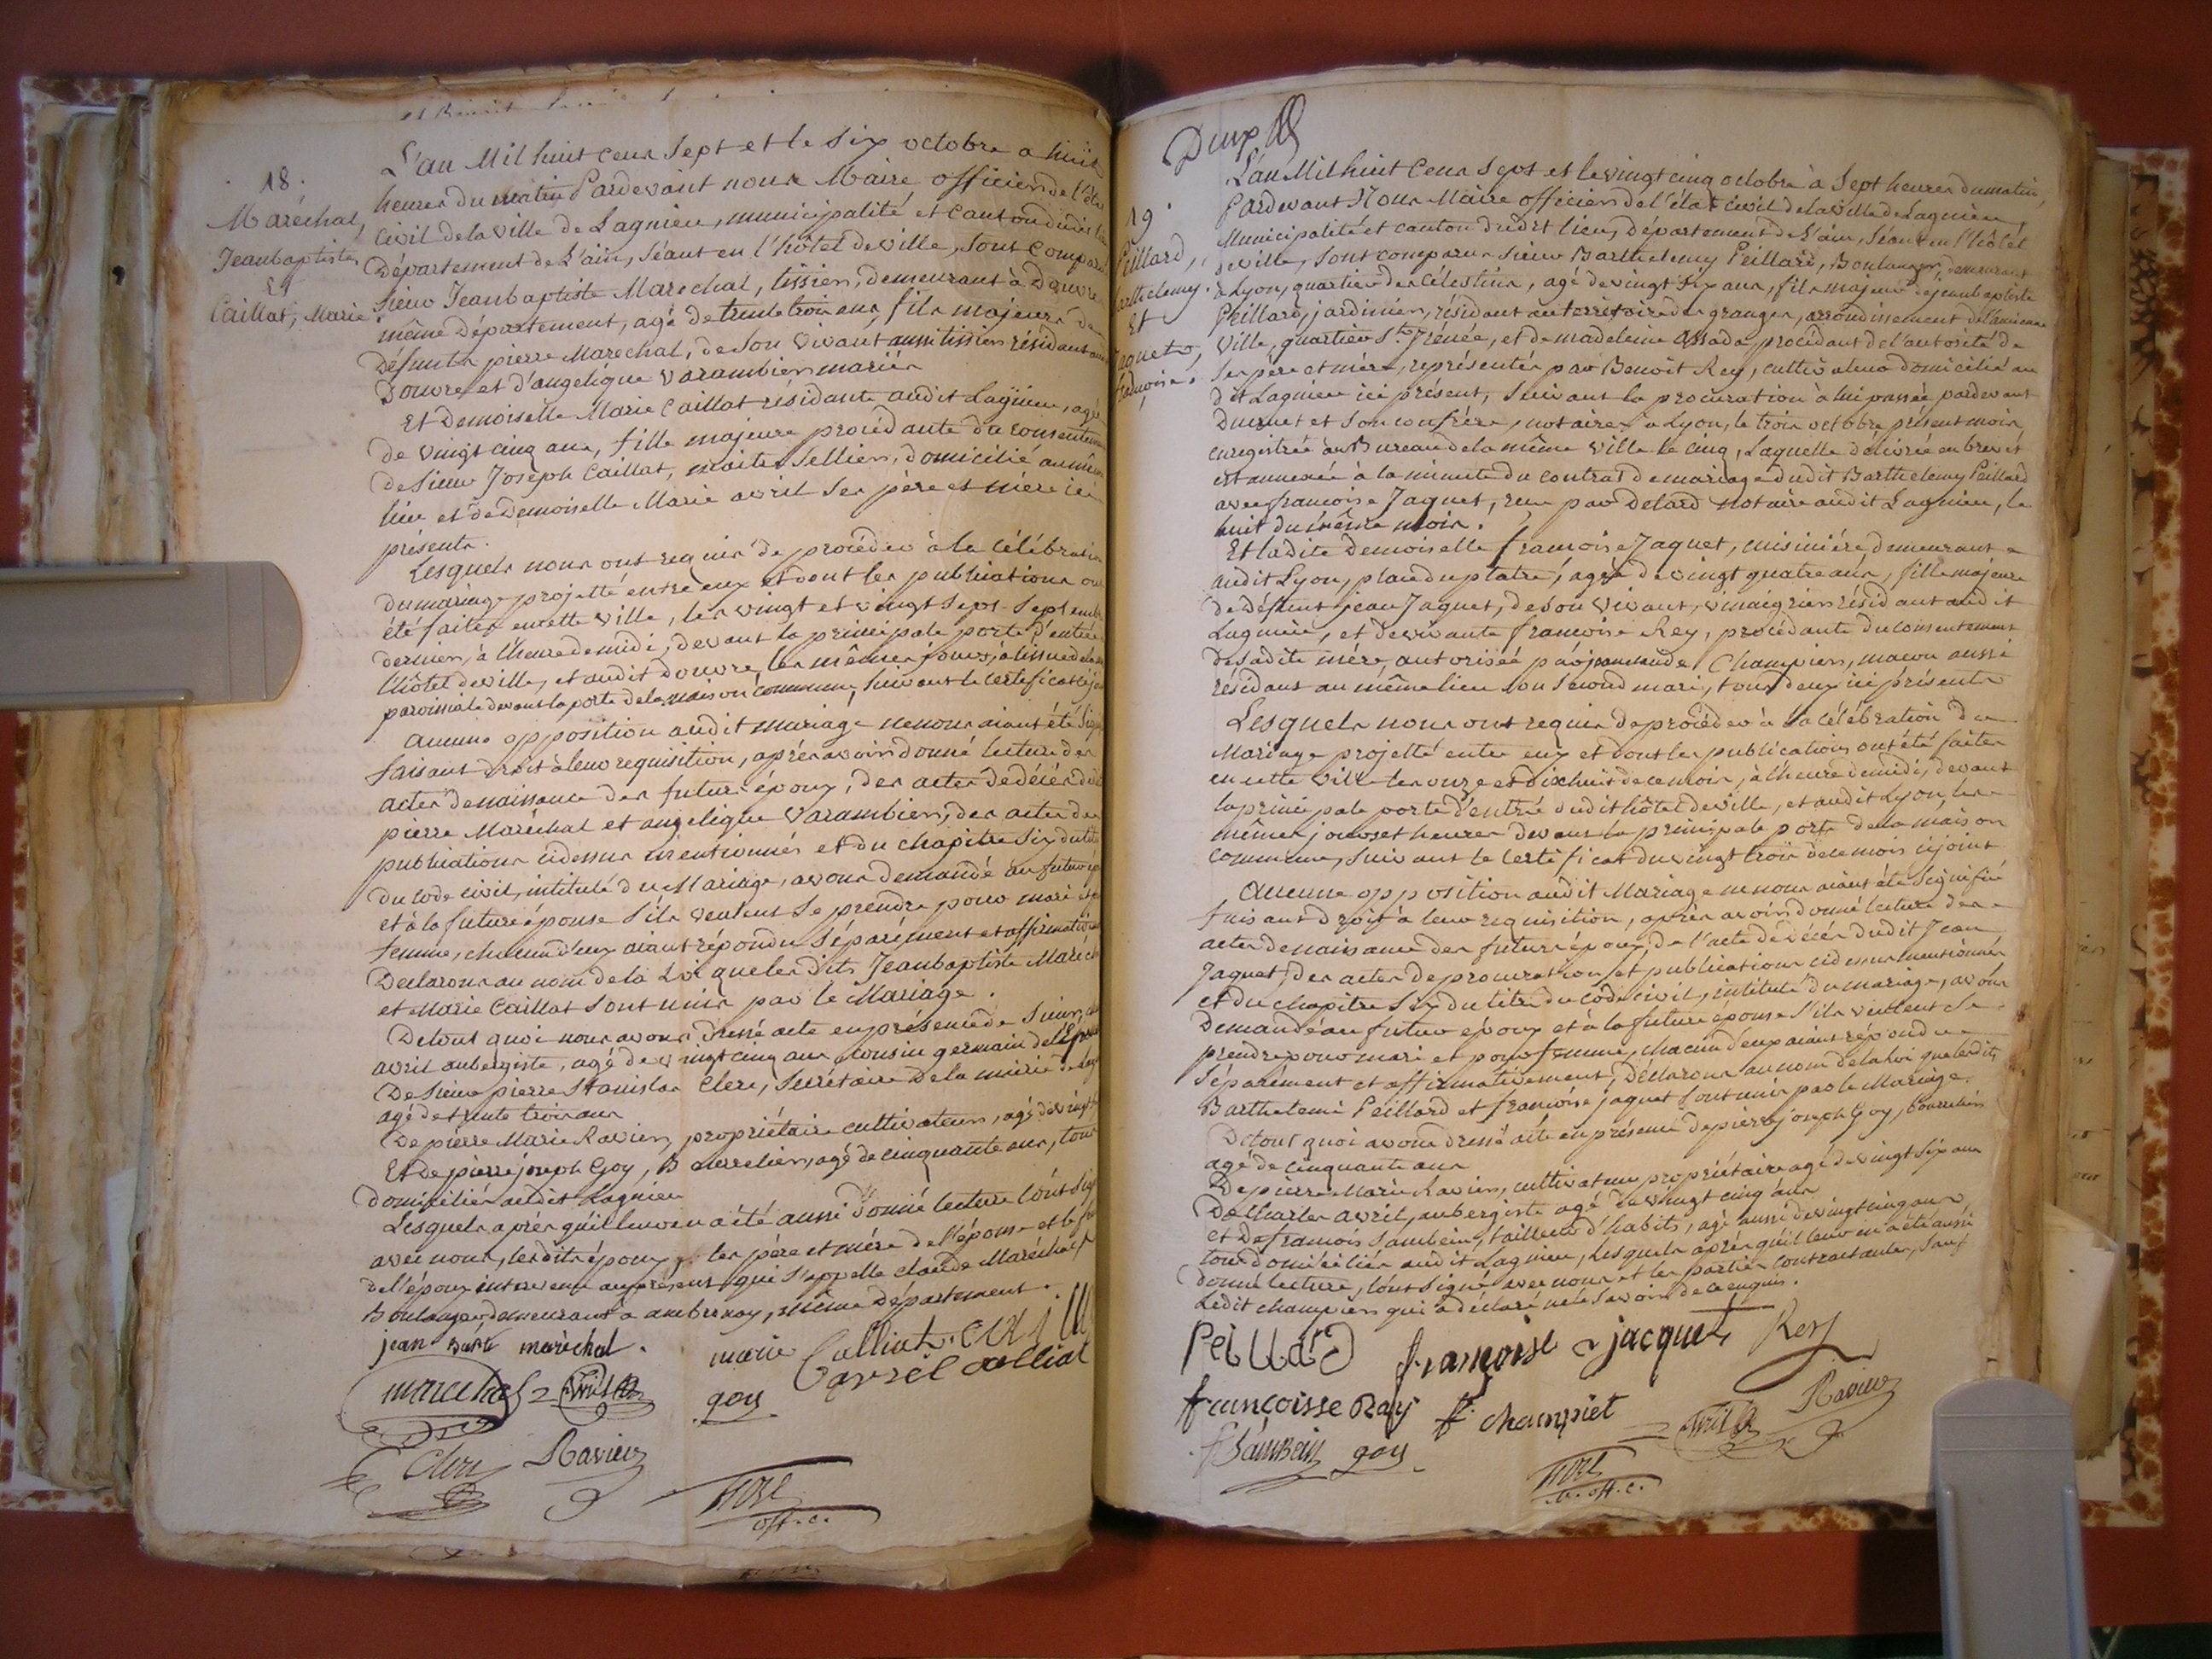 18.
Maréchal,
Jeanbaptiste
Et
Caillat, Marie
L'an Mil huit cens Sept et le Six octobre a huit
heures du matin Pardevant nous Maire officier de l'État
Civil de la Ville de Lagnieu, municipalité et Canton dudit lieu
Département de L'ain, Séant en l'hôtel de Ville, Sont Comparus
Sieur Jeanbaptiste Marechal, tissier, demeurant à Douvre
même Département, agé de trente trois ans, fils majeurs de
Défunts pierre Marechal, de Son Vivant aussi tissier résidant audit
Douvre et d'angelique Varambier mariés
Et Demoiselle Marie Caillat résidante audit Lagnieu, agée
de Vingt cinq ans, fille majeure procédante du consentement
de Sieur Joseph Caillat, maitre Sellier, domicilié au même
lieu et de Demoiselle Marie avril Ses père et mère ici
présents.
Lesquels nous ont requis de procéder à la Célébration
du mariage projetté entre eux et dont les publications ont
été faites en cette Ville, les vingt et vingt Sept Septembre
dernier, à l'heure de midi, devant la principale porte d'entrée
l'hôtel de Ville, et audit douvre les mêmes jours, à l'issue de la
paroissiale devant la porte de la maison commune, Suivant le Certificat
Aucune opposition audit mariage ne nous aiant été
faisant droit à leur requisition, après avoir donné lecture des
actes de naissance des futurs époux, des actes de décès
pierre Maréchal et angelique Varambier, des actes de
publications cidessus mentionnés et du chapitre Six du titre
du Code Civil, intitulé du Mariage, avons demandé au futur époux
et à la future épouse S'ils veulent Se prendre pour mari et
femme, chacun d'eux aiant répondu Séparément et affirmativement
Déclarons au nom de la Loi que les dits Jeanbaptiste Maréchal
et Marie Caillat Sont unis par le Mariage.
De tout quoi nous avons dressé acte en présence de Sieur
avril aubergiste, agé de vingt cinq ans cousin germain de l'Epouse
De Sieur pierre Stanislas Clere, Secrétaire de la mairie de
agé de trente trois ans
De pierre Marie Ravier, propriétaire cultivateur, agé de vingt
Et de pierre joseph Goy, Bourrelier, agé de cinquante ans, tous
domiciliés audit Lagnieu
Lesquels après qu'il leur en a été aussi donné lecture l'ont Signé
avec nous, lesdits époux, les père et mère de l'épouse et le
de l'époux intervenu au présent qui S'appelle claude Maréchal
Boulanger demeurant a ambronay, même département.
jean marèchal.
marie Calliat
marechal
avril
goy
avril calliat
Clere
Ravier
off. c.
Deux
19.
Peillard,
Barthelemy.
Et
Jaquet,
francoise.
L'an Mil huit Cens Sept et le vingt cinq octobre à Sept heures du matin,
Pardevant Nous Maire officier de l'état civil de la ville de Lagnieu,
Municipalité et canton dudit lieu, Département de L'ain, Séant en l'hôtel
de Ville, Sont comparus Sieur Barthelemy Peillard, Boulanger, demeurant
à Lyon, quartier des Célestins, agé de vingt Six ans, fils majeur de jeanbaptiste
Peillard, jardinier, résidant au territoire des granges, arrondissement de l'ancienne
Ville, quartier St. Irénée, et de madeleine assada, procédant de l'autorité de
Ses père et mère, représentés par Benoit Rey, cultivateur domicilié au
dit Lagnieu ici présent, Suivant la procuration à lui passée pardevant
et Son confrère, notaires à Lyon, le trois octobre présent mois,
enregistrée au Bureau de la même Ville le cinq, Laquelle délivrée en brevet
est annexée à la minute du contrat de mariage dudit Barthelemy Peillard
avec francoise Jaquet, recu par Delard notaire audit Lagnieu, le
huit du même mois.
Et ladite Demoiselle francoise Jaquet, cuisinière, demeurant a
audit Lyon, place du platre, agée de vingt quatre ans, fille majeure
de défunt jean Jaquet, de son vivant, vinaigrier résidant audit
Lagnieu, et de vivante francoise Rey, procédante du consentement
de sadite mère, autorisée par Champier, macon aussi
résidant au même lieu son second mari, tous deux ici présents
Lesquels nous ont requis de procéder à la célébration du
Mariage projetté entre eux et dont les publications ont été faites
en cette Ville les onze et dixhuit de ce mois, à l'heure de midi, devant
la principale porte d'entrée dudit hôtel de Ville, et audit Lyon, les
mêmes jours et heures devant la principale porte de la maison
commune, Suivant le Certificat du vingt trois de ce mois cijoint
Aucune opposition audit Mariage ne nous aiant été Signifiée
faisant droit à leur requisition, après avoir donné lecture des
actes de naissance des futurs époux, de l'acte de décès dudit Jean
Jaquet, des actes de procuration et publications cidessus mentionnés
et du chapitre Six du titre du code civil, intitulé du mariage, avons
Demandé au futur époux et à la future épouse S'ils veulent Se
prendre pour mari et pour femme, chacun d'eux aiant répondu
Séparément et affirmativement, Déclarons au nom de la Loi que lesdits
Barthelemi Peillard et francoise jaquet Sont unis par le Mariage.
De tout quoi avons dressé acte en présence de pierre joseph Goy, bourrelier
agé de cinquante ans
De pierre Marie Ravier, cultivateur propriétaire agé de vingt Six ans
De Charles avril, aubergiste agé de vingt cinq ans
et De francois Sambein, tailleur d'habits, agé aussi de vingt cinq ans,
tous domiciliés audit Lagnieu, Lesquels après qu'il leur en a été aussi
donné lecture, l'ont Signé avec nous et les parties contractantes, Sauf
Ledit champier qui a déclaré ne le Savoir de ce enquis.
PeillarD
françoise jacquet
Rey
francoisse Ray
f. champiet
avril
Ravier
f Sambein
goy
m. off. c.